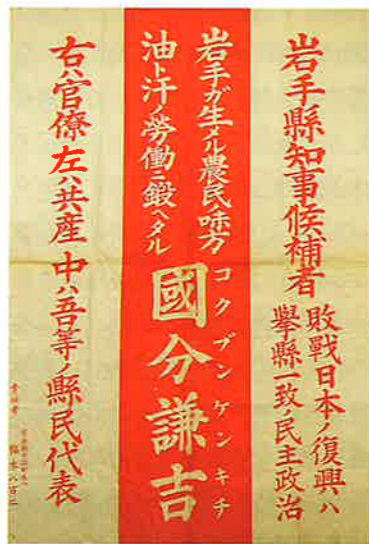 岩手縣知事候補者
敗戰日本ノ復興ハ
擧縣一致ノ民主政治
岩手ガ生メル農民味方
油ト汗ノ勞働ニ鍛ヘタル
國分謙吉
コクブンケンキチ
右ハ官僚左ハ共産中ハ吾等ノ縣民代表